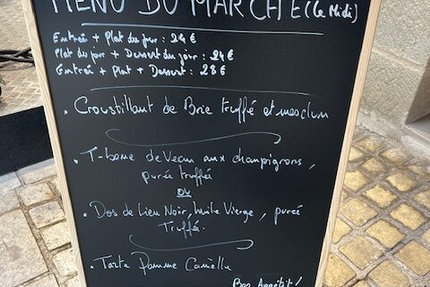 MENU DU MARCHE (Le Midi)
Entrée + Plat du jour : 24 €
Plat du jour + Dessert du jour : 24 €
Entrée + Plat + Dessert : 28 €
. Croustillant de Brie truffé et mesclun
. T-bone de Veau aux champignons,
purée truffé
ou
. Dos de Lieu Noir, huile Vierge, purée
Truffé.
. Tarte Pomme Canelle
Bon Appétit !